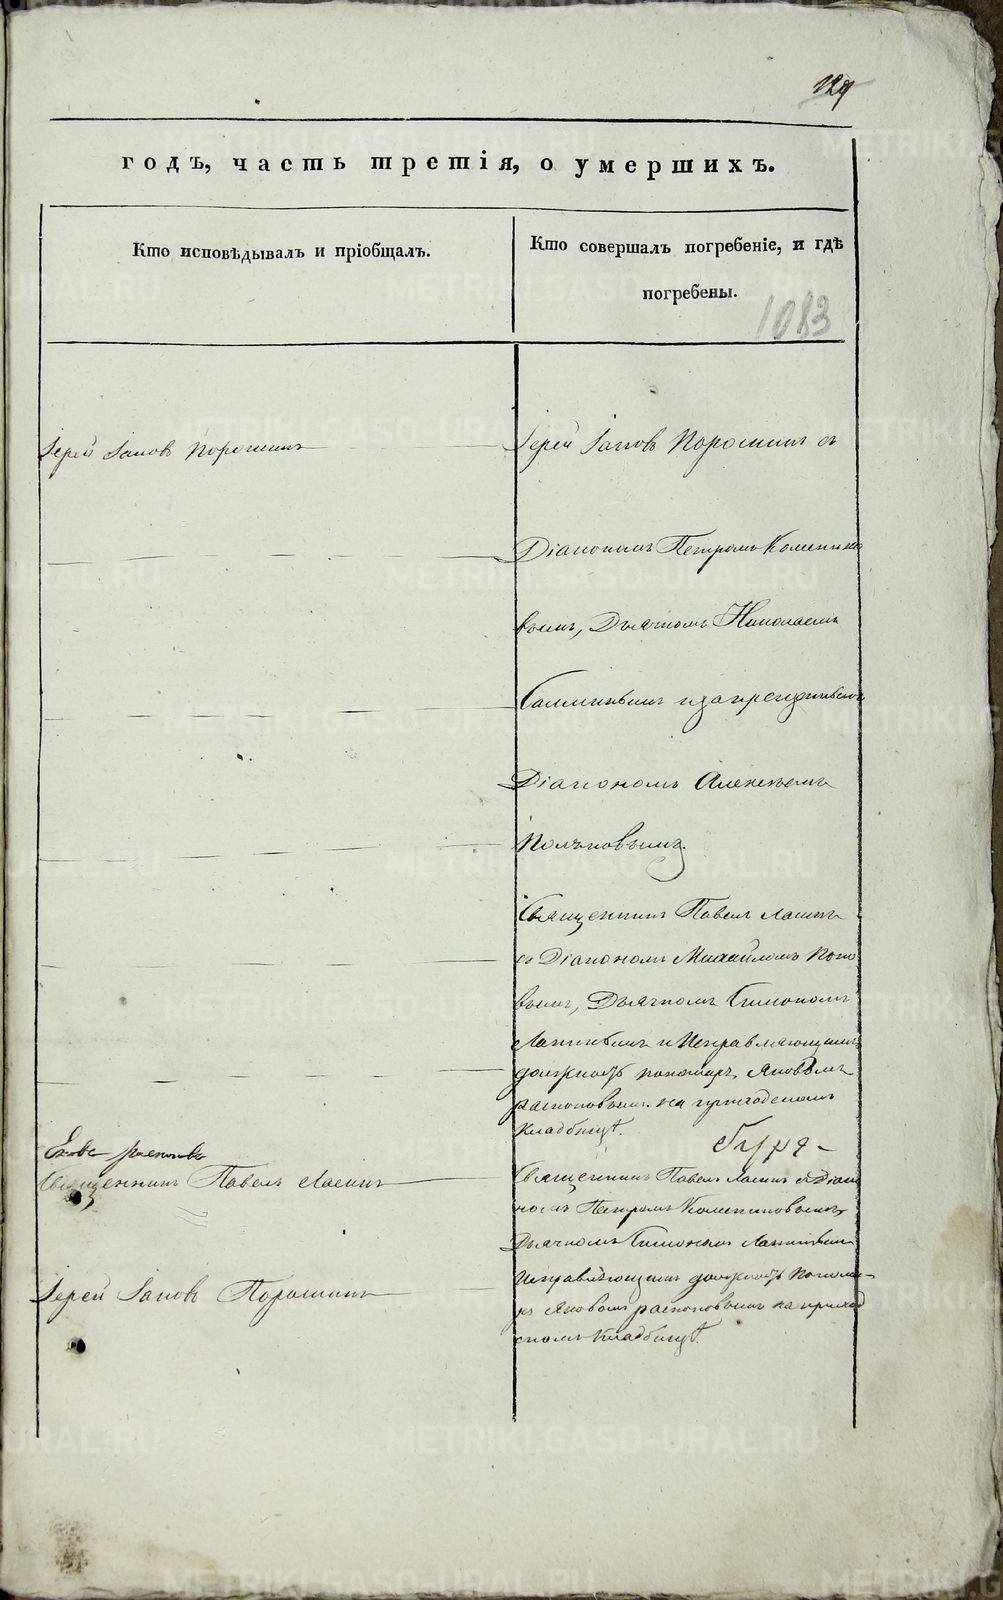 129
годъ, часть третія, о умершихъ.
Кто исповѣдывалъ и пріобщалъ.
Кто совершалъ погребеніе, и гдѣ
погребены.
1083
Іерей Іаковъ Порошинъ
Іерей Іаковъ Порошинъ съ
Діакономъ Петромъ
вымъ, Дьячкомъ Николаемъ
Діакономъ Алексѣемъ
Поляковымъ.
Священникъ Павелъ
съ Діакономъ Михайломъ Попо
вымъ, Дьячкомъ Симономъ
и Исправляющимъ
должность пономаря, Яковомъ
распоповымъ на приходскомъ
Кладбищѣ.
Священникъ Павелъ
Священникъ Павелъ съ Діако
номъ Петромъ
Дьячкомъ Симономъ
Исправляющимъ должность Понома
ря Яковомъ распоповымъ на приход
скомъ Кладбищѣ.
Іерей Іаковъ Порошинъ
METRIKI.GASO-URAL.RU